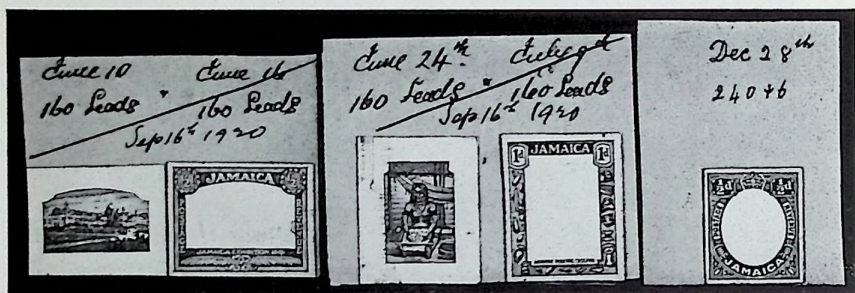 June 10 June 16
160 Leads " 160 Leads
Sep 16th 1920
JAMAICA
JAMAICA EXHIBITION 1891
June 24th "
160 Leads 160 Leads
Sep 16th 1920
1d JAMAICA 1d
Dec 28th
240 + 6
½d ½d
JAMAICA